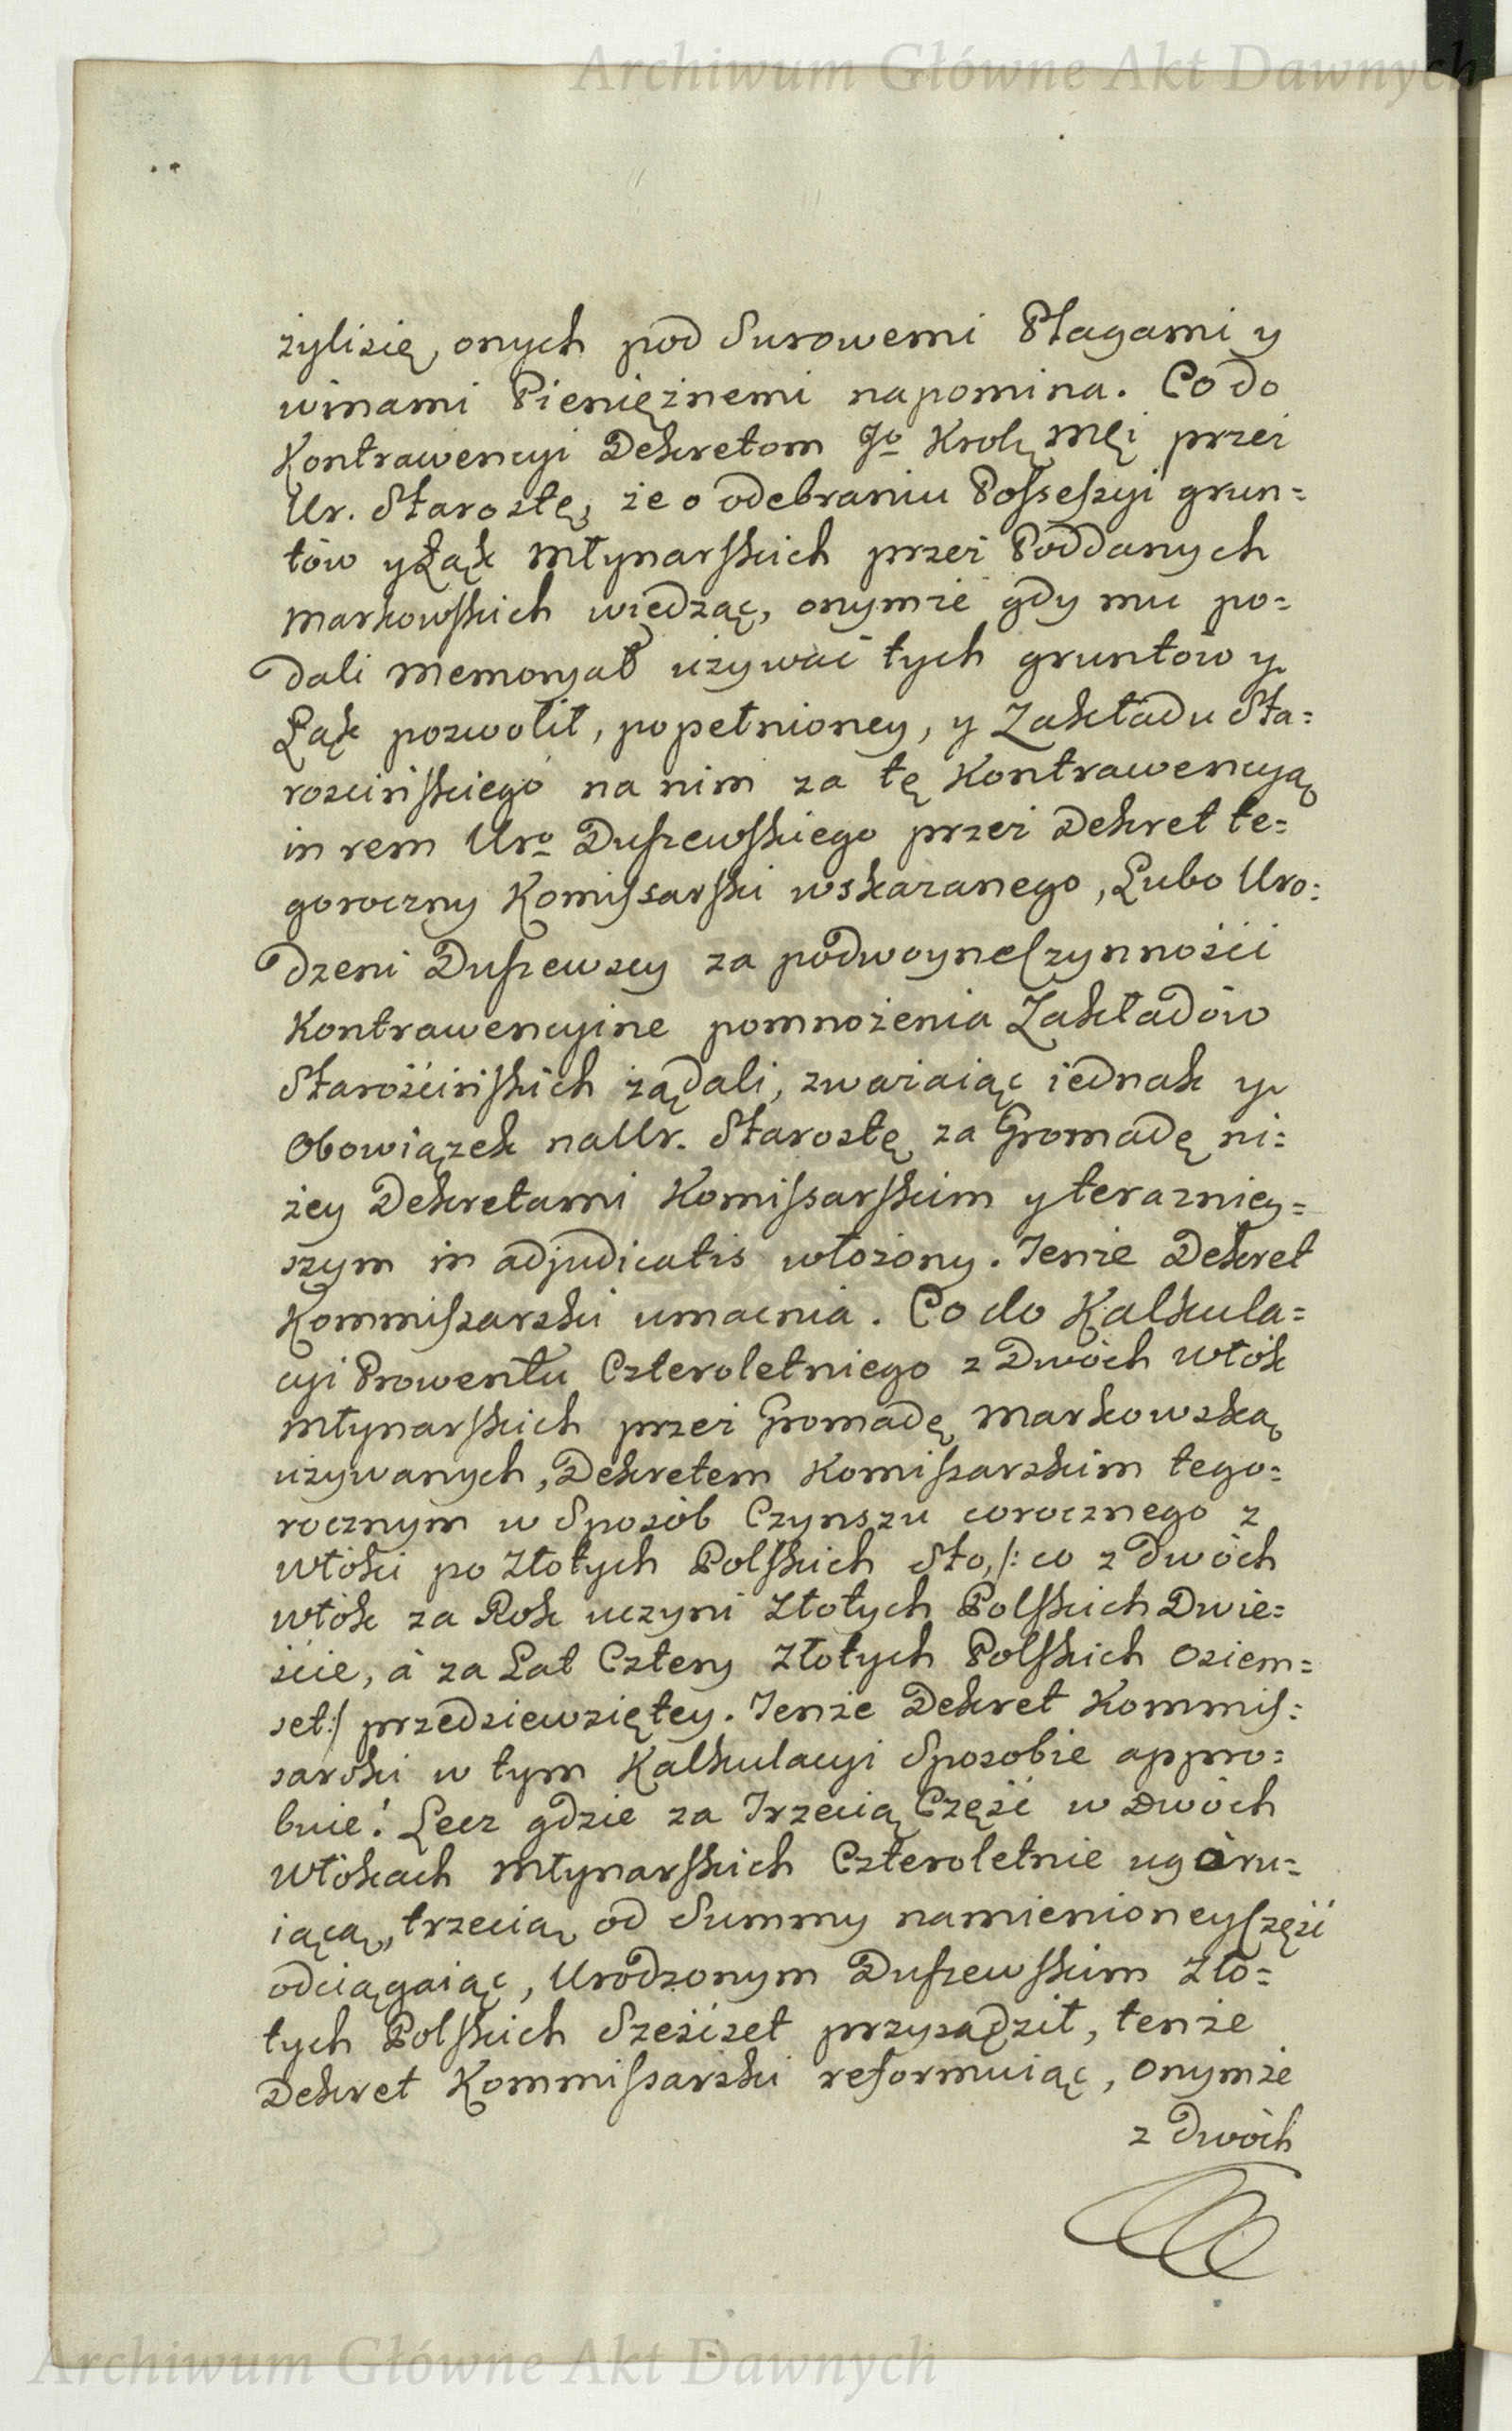 Archiwum Główne Akt Dawnych
żyli się, onych pod Surowemi Plagami y
winami Pieniężnemi napomina. Co do
Kontrawencyi Dekretom Jº Krolę Mci przez
Ur. Starostę, że o odebraniu Possessyi grun=
tów y Łąk Młynarskich przez Poddanych
Markowskich wiedząc, onymże gdy mu po=
dali Memoryał używać tych gruntów y
Łąk pozwolił, popełnioney, y Zakładu Sta=
rościńskiego na nim za tę Kontrawencyą
in rem Urº Duszewskiego przez Dekret te=
goroczny Komissarski wskazanego, Lubo Uro=
dzeni Duszewscy za podwoyne Czynności
Kontrawencyine pomnożenia Zakładów
Starościńskich żądali, zważaiąc iednak y
Obowiązek na Ur. Starostę za Gromadę ni=
żey Dekretami Komissarskim y terazniey=
szym in adjudicatis włożony. Tenże Dekret
Kommissarski umacnia. Co do Kalkula=
cyi Prowentu Czteroletniego z Dwóch włók
Młynarskich przez Gromadę Markowską
używanych, Dekretem Komissarskim tego=
rocznym w Sposób Czynszu corocznego z
włóki po Złotych Polskich Sto, /: co z dwóch
włók za Rok uczyni Złotych Polskich Dwie=
ście, à za Lat Cztery Złotych Polskich Osiem=
set :/ przedsiewziętey. Tenże Dekret Kommis=
sarski w tym Kalkulacyi Sposobie appro=
buie! Lecz gdzie za Trzecią Część w Dwóch
Włókach Młynarskich Czteroletnie ugóru=
iącą, trzecią od Summy namienioney Część
odciągaiąc, Urodzonym Duszewskim Zło=
tych Polskich Sześćset przysądził, tenże
Dekret Kommissarski reformuiąc, onymże
z Dwóch
Archiwum Główne Akt Dawnych